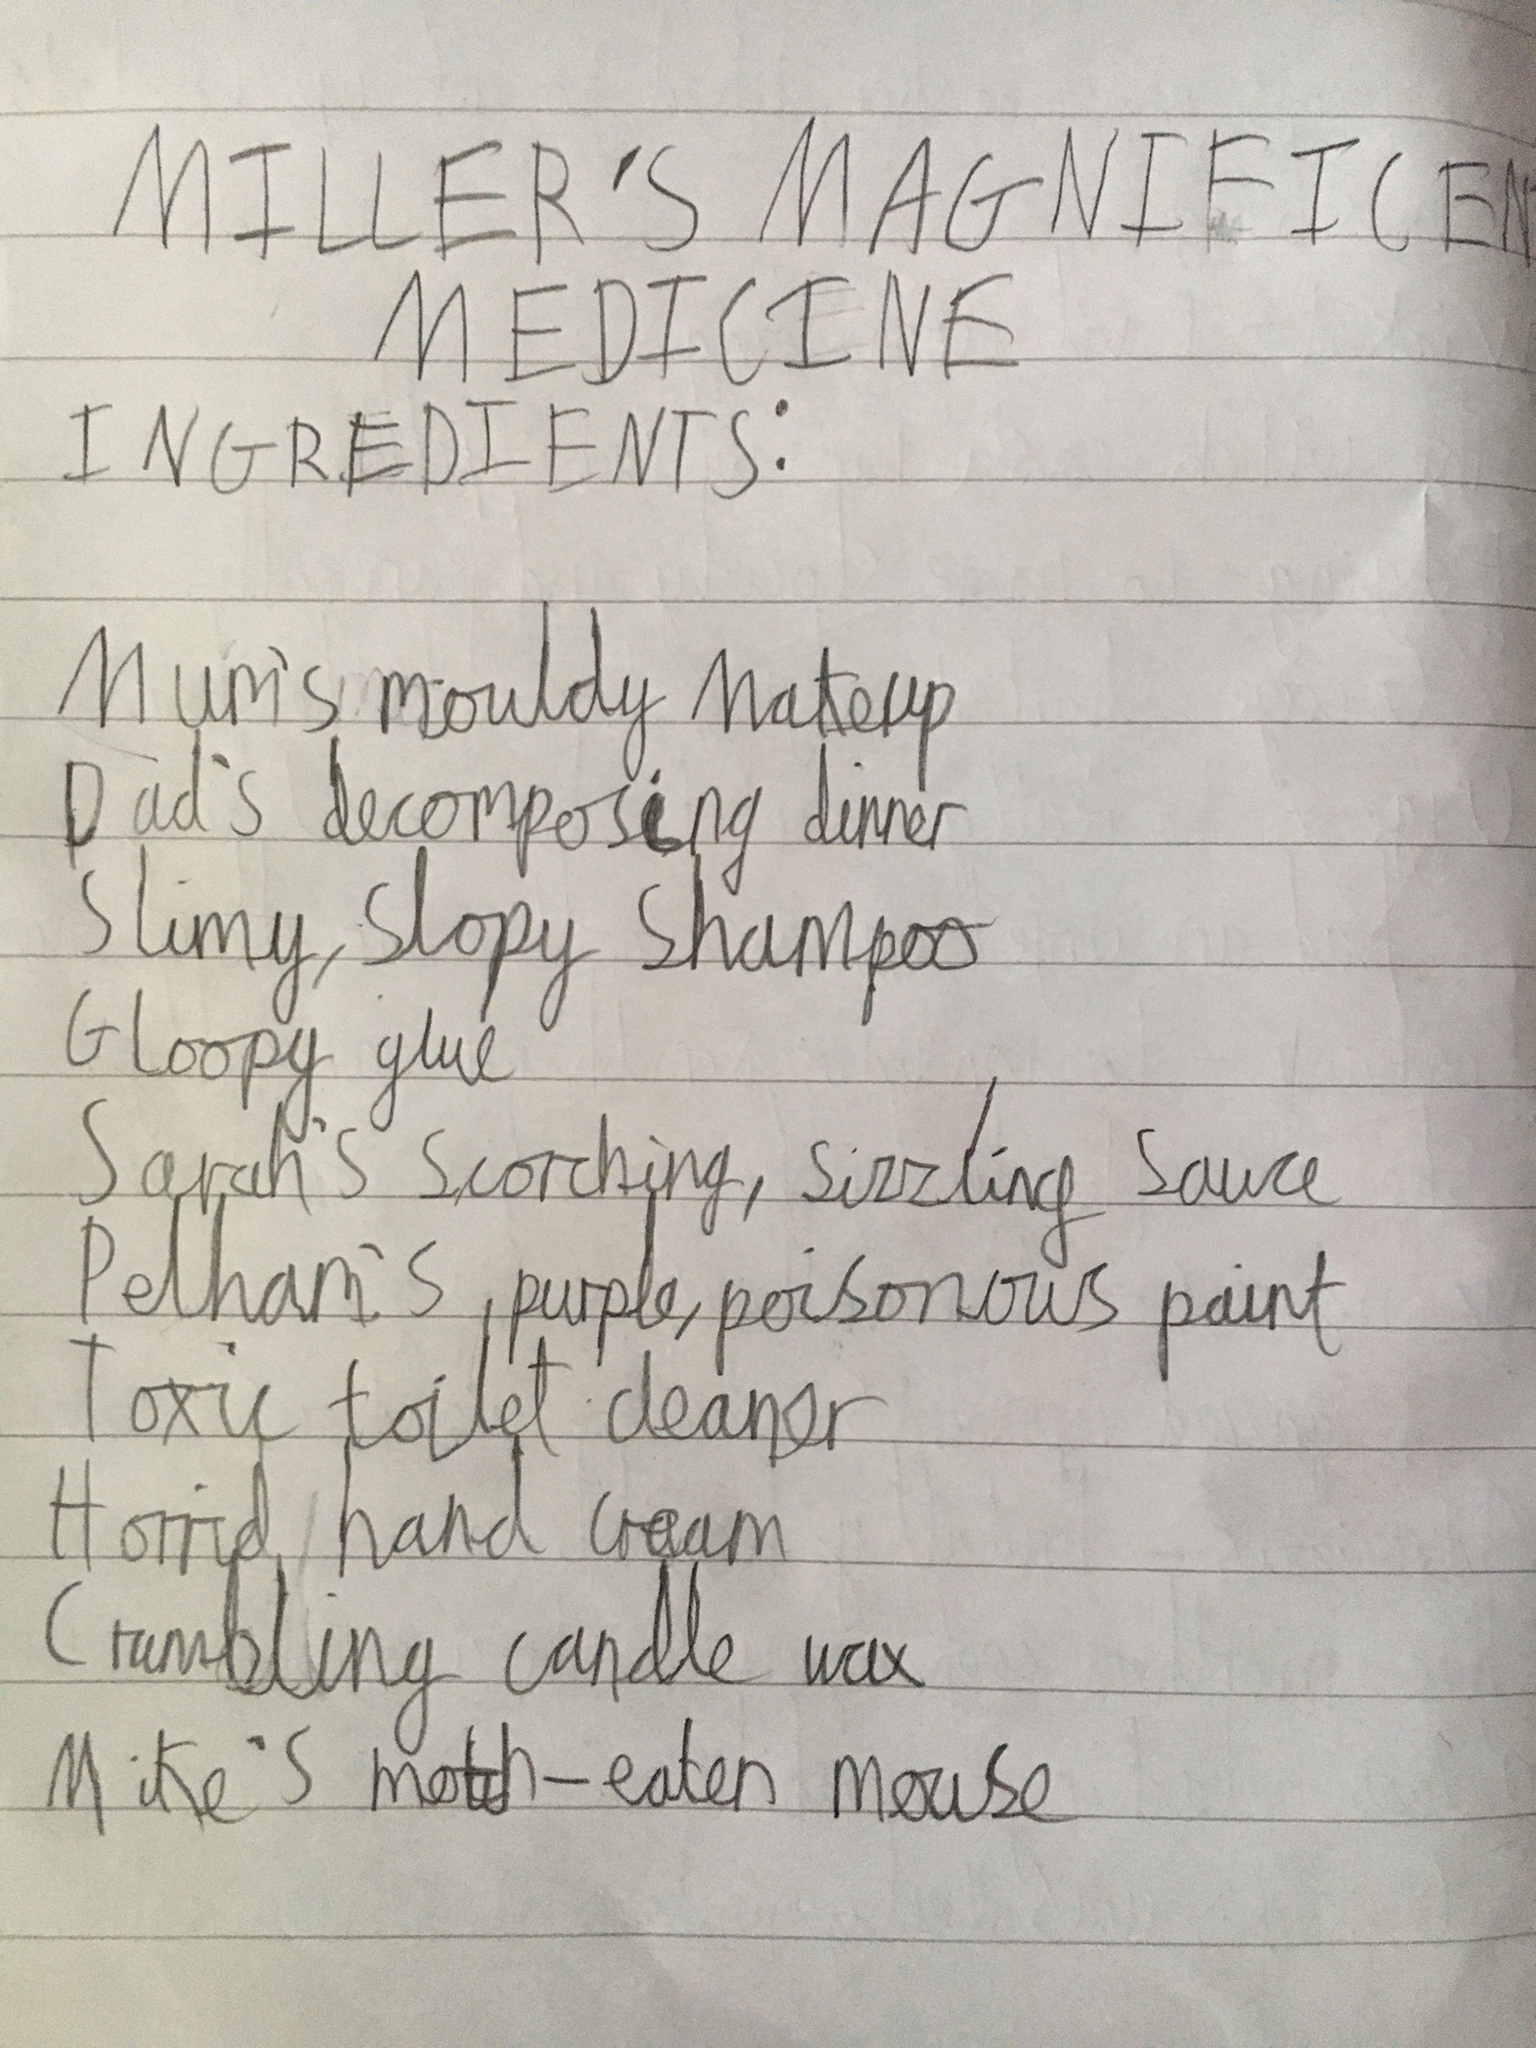 MILLER'S MAGNIFICEN
MEDICINE
INGREDIENTS:
Mum's mouldy Makeup
Dad's decomposing dinner
Slimy, Slopy Shampoo
Gloopy glue
Sarah's scorching, sizzling sauce
Pelham's, purple, poisonous paint
Toxic toilet cleaner
Horrid, hand cream
Crumbling candle wax
Mike's moth-eaten mouse